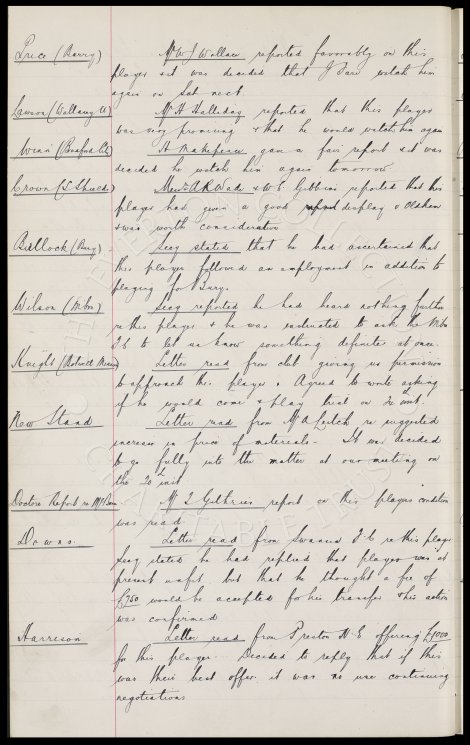 Price (Barry) Mr W J Wallace reported favorably on this
player & it was decided that J Dare watch him
again on Sat next
Lawson (Wallasey U) Mr H Halliday reported that this player
was very promising & that he would watch him again
H Makepeace gave a fair report & it was
decided he watch him again tomorrow
Crown (S. Shields) Messrs A R Wade & W C Gibbins reported that this
player had given a good display v Oldham
& was worth consideration
Bullock (Bury) Secy stated that he had ascertained that
this player followed an employment in addition to
playing for Bury.
Wilson (Mbro) Secy reported he had heard nothing further
re this player & he was instructed to ask the Mbro
F.C. to let us know something definite at once.
Knight Letter read from club giving us permission
to approach the player. Agreed to write asking
if he would come & play trial on inst.
New Stand Letter read from Mr A Leitch re suggested
increase in price of materials. It was decided
to go fully into the matter at our meeting on
the inst
Doctors Report re Mr 's report on this players condition
was read.
Downs. Letter read from Swansea F.C. re this player
Secy stated he had replied that player was at
present unfit but that he thought a fee of
£750 would be accepted for his transfer & his action
was confirmed
Harrison Letter read from Preston N.E. offering
for this player. Decided to reply that if this
was their best offer it was no use continuing
negotiations